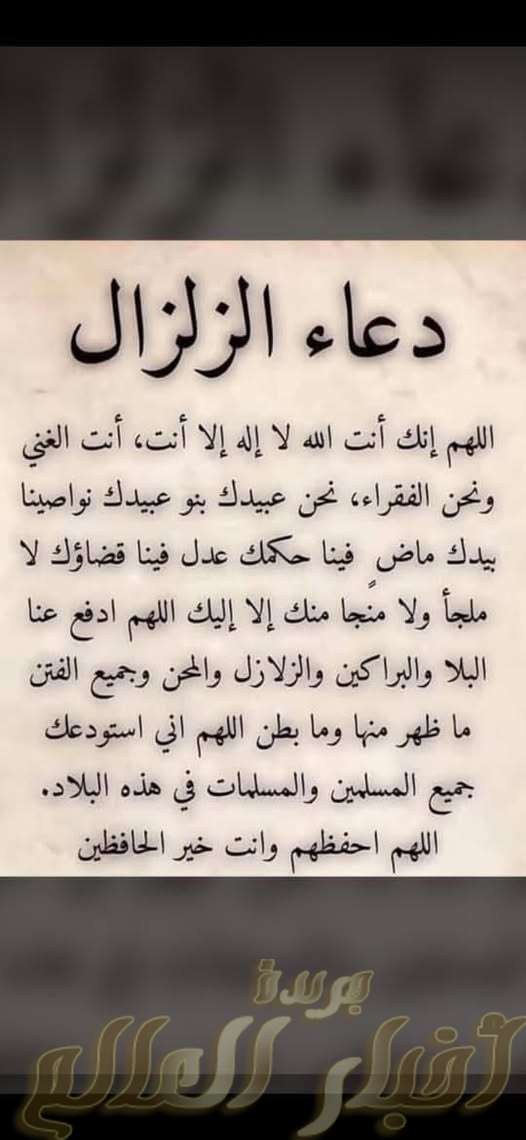 دعاء الزلزال
اللهم إنك أنت الله لا إله إلا أنت، أنت الغني
ونحن الفقراء، نحن عبيدك بنو عبيدك نواصينا
بيدك ماضٍ فينا حكمك عدل فينا قضاؤك لا
ملجأ ولا منجا منك إلا إليك اللهم ادفع عنا
البلا والبراكين والزلازل والمحن وجميع الفتن
ما ظهر منها وما بطن اللهم اني استودعك
جميع المسلمين والمسلمات في هذه البلاد.
اللهم احفظهم وانت خير الحافظين
جريدة
أخبار العالم